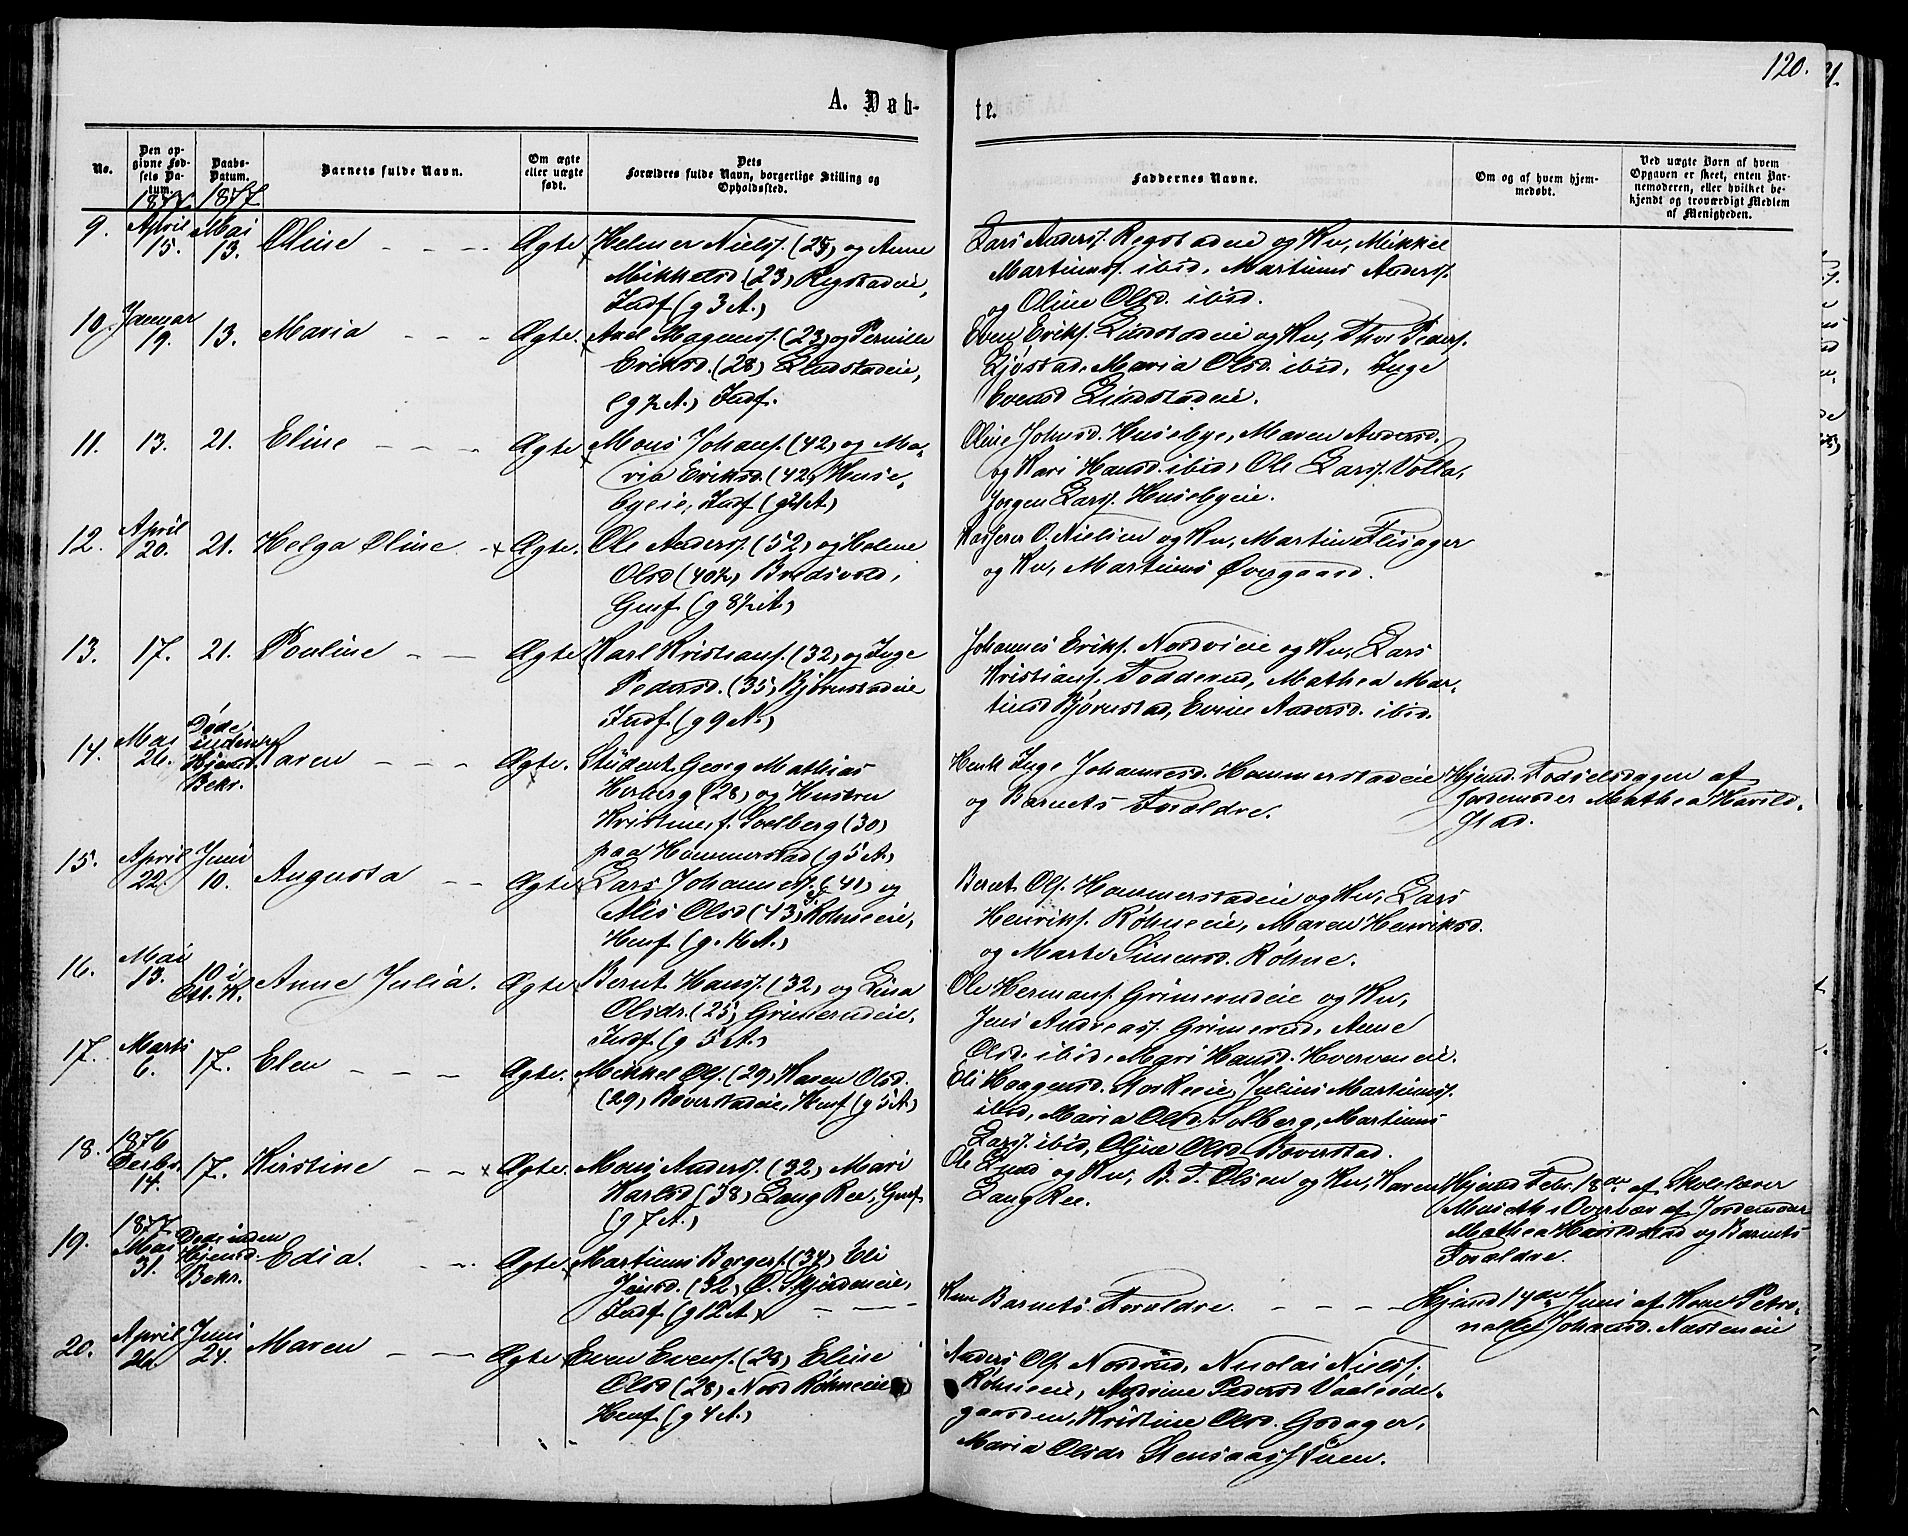 120.
A. Døb-
te.
No.
Den op-
givne Fød-
sels Da-
tum.
Daabs-
Datum.
Barnets fulde Navn.
Om ægte
eller uægte
født.
Dets
Forældres fulde Navn, borgerlige Stilling og
Opholdssted.
Faddernes Navne.
Om og af hvem hjem-
medøbt.
Ved uægte Born af hvem
Opgaven er skeet, enten Bar-
nemoderen, eller hvilket be-
kjendt og troværdigt Medlem
af Menigheden.
1877. 1877.
9. April 15. Mai 13. Oline Ægte Helmer Nielss. (25) og Anne
Mikkelsd (23) Regstadeie,
Indf (g 3 A.)
Lars Anders. Regstadeie og Kv, Mikkel
Martinuss. ibid, Martinus Anderss.
og Oline Olsd. ibid.
10. Januar 19. 13. Maria Ægte. Axel Magnuss. (23) og Pernille
Eriksd. (28) Lundstadeie,
(g ½ A.) Indf.
Even Eriks. Lundstadeie og Kv, Thor Peders.
Maria Olsd. ibid, Inge
Evensd
11. 13. 21. Eline Ægte Mons Johans. (42) og Ma-
ria Eriksd. (42) Huse-
byeie, Indf (g 21 A)
Oline Johnsd. Husebye, Maren Andersd.
og Kari Hansd. ibid, Ole Larss. Volla,
Jørgen Larss. Husebyeie.
12. April 20. 21. Helga Oline Ægte. Ole Anderss. (52) og Helene
Olsd (40½) Bredsvold,
Gusf (g 8½ A)
Kasserer O. Nielsen og Kv, Martin Flisager
og Kv, Martinus Øvergaard.
13. 17. 21. Pouline Ægte Karl Kristians. (32) og Inge
Pedersd. (35) Bjørnstadeie
Indf (g 9 A.)
Johannes Eriks. Nordvieie og Kv, Lars
Kristians. Fodderud, Mathea Mar-
tinsd Bjørnstad, Evine Andersd. ibid.
14. Mai 26. Døde
inden
Hjemd.
Bekr. Karen Ægte. Student Georg Mathias
Herberg (28) og Hustru
Kristine, f. Soelberg (30)
paa Hommerstad (g 5 A)
Inge Johannesd. Hommerstadeie
og Barnets Forældre.
Hjemd. Fødselsdagen af
Jordemoder Mathea Harild-
stad.
15. April 22. Juni 10. Augusta Ægte Lars Johanness. (41) og
Alis Olsd (43) Røhneeie,
Husf (g. 16 A.)
Bernt Ols. Hommerstadeie og Kv, Lars
Henriks. Røhneeie, Maren Henriksd.
og Marte Simensd. Røhne.
16. Mai 13. 10 i
Ott. K. Anne Julia. Ægte Bernt Hanss. (32) og Lina
Olsdr. (25) Grimerudeie,
Indf (g 5 A.)
Ole Hermans. Grimerudeie og Kv,
Jens Andreass. Grimerud, Anne
Olsd. ibid, Mari Hansd. Hverveneie.
17. Marts 6. 17. Elen Ægte. Mikkel Ols. (29) Karen Olsd.
(29) Boverstadeie, Husf (g 5 A)
Eli Haagensd. Julius Martinuss.
ibid, Maria Olsd. Solberg, Martinus
Larss. ibid, Oline Olsd Boverstad.
18. 1876
Decbr. 14. 17. Kirstine Ægte. Mons Anderss. (32) Mari
Karlsd (38) Lang Ree, Gusf
(g 7 A.)
Ole Lund og Kv, B. T. Olsen og Kv, Karen
Lang Ree.
Hjemd Febr. 18de af Skolelærer
af Jordemoder
Mathea Harildstad og Barnets
Forældre.
19. 1877
Mai 31. Døde inden
Hjemd.
Bekr. Edia. Ægte. Martinus Borgers. (34) Eli
Jensd. (32) O. Skjerdeneie,
Indf (g 12 A)
Kun Barnets Forældre.
Hjemd 14de Juni af Kone Petro-
nelle Johansd.
20. April 24. Juni 24. Maren Ægte Even Evens. (28) Eline
Olsd (28) Nord Røhneeie
Husf (g 4 A.)
Anders Ols. Nordrud, Nicolai Nielss.
Røhneeie, Andrine Pedersd Vaalsøde-
gaarden, Kristine Olsd. Godager,
Maria Olsdr